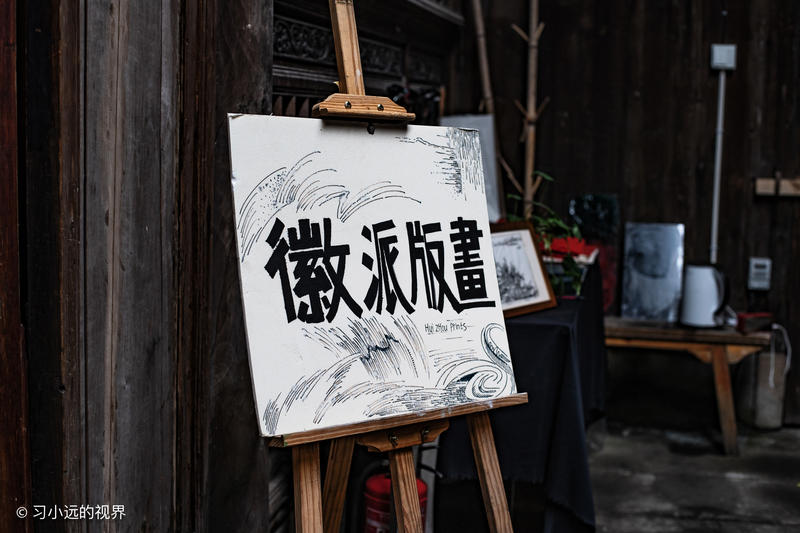 徽派版畫
Hui zhou Prints
© 习小远的视界